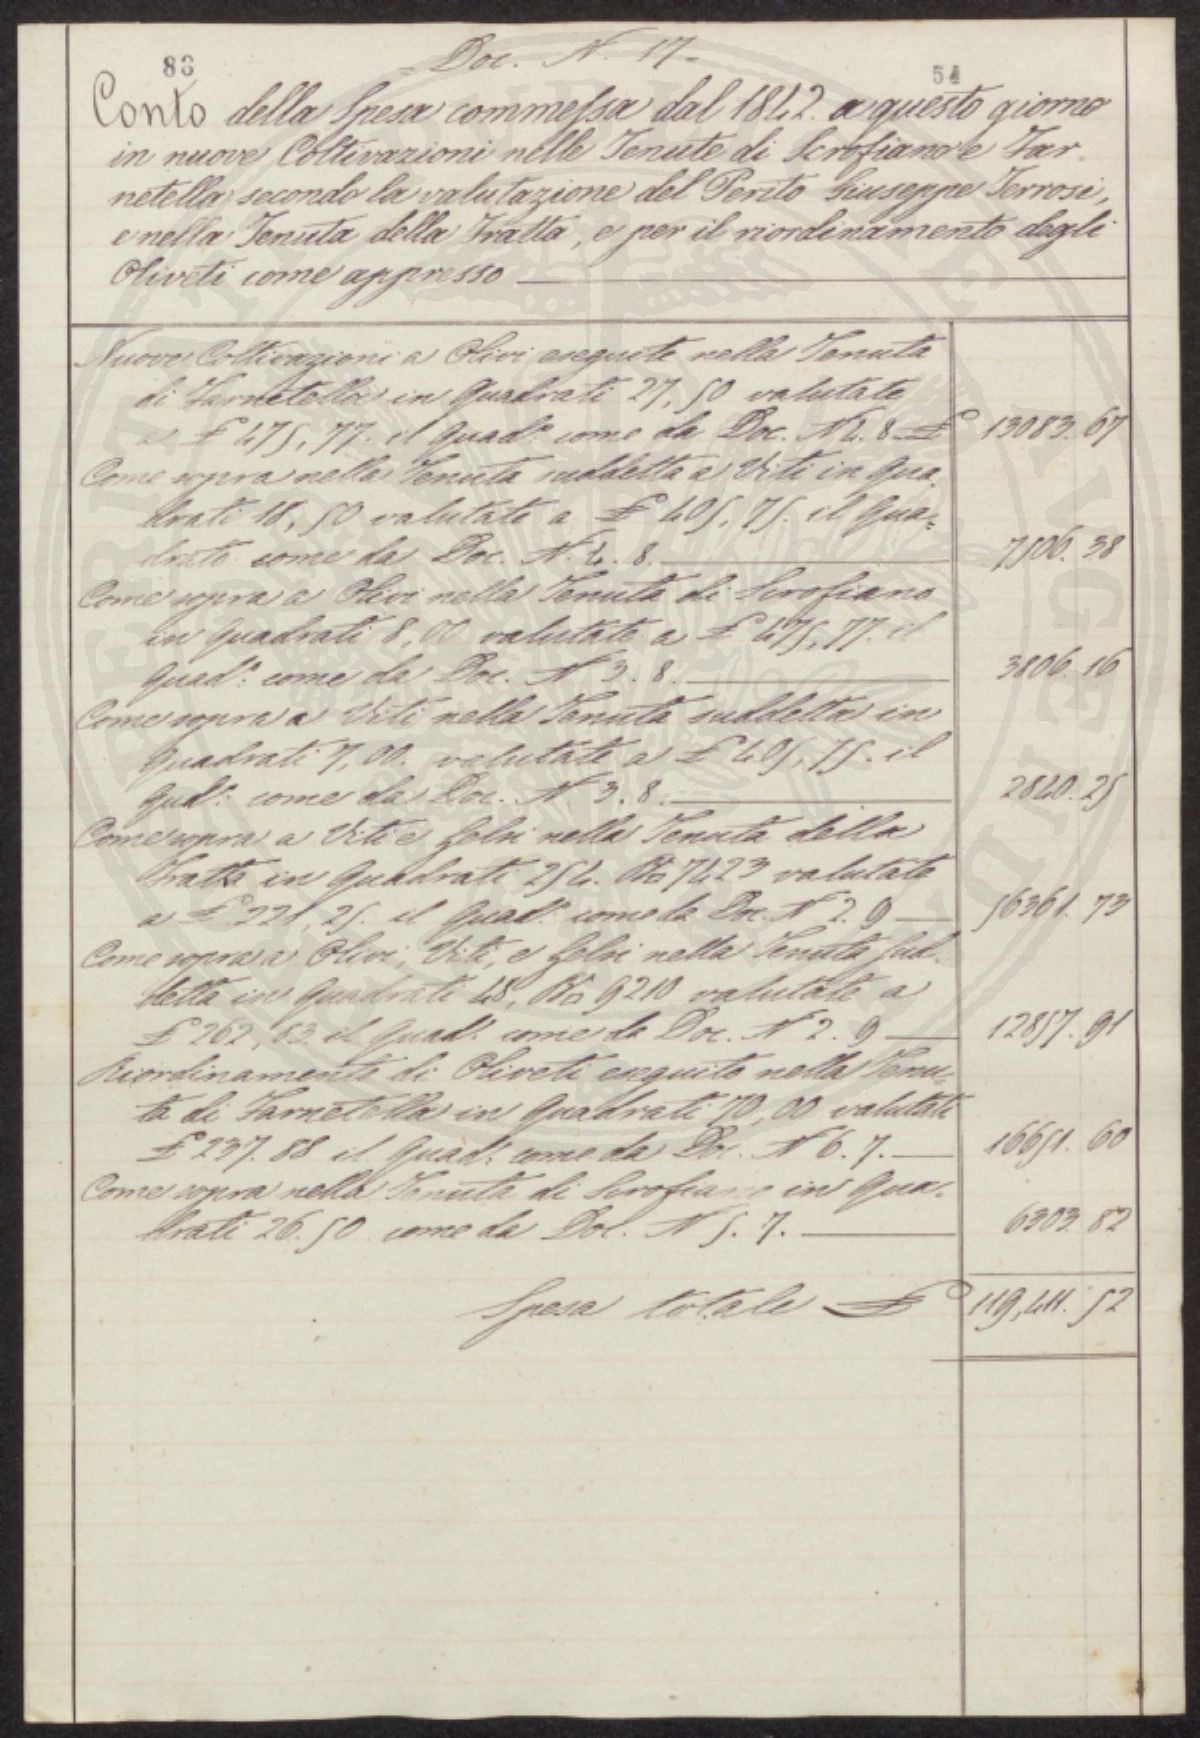 83
Doc. N. 17.
54
Conto della Spesa commessa dal 1842. a questo giorno
in nuove Coltivazioni nelle Tenute di Scrofiano e Far-
netella secondo la valutazione del Perito Giuseppe Terrosi,
e nella Tenuta della Fratta, e per il riordinamento degli
Oliveti come appresso
Nuove Coltivazioni a Olivi eseguite nella Tenuta
di Farnetella in Quadrati 27,50 valutate
a £ 475,77. il Quad.º come da Doc. N 4. 8. £ 13083. 67
Come sopra nella Tenuta suddetta a Viti in Qua-
drati 18,50 valutate a £ 405,75. il Qua-
drato come da Doc. N. 4. 8. 7506. 38
Come sopra a Olivi nella Tenuta di Scrofiano
in Quadrati 8,00 valutate a £ 475,77. il
Quad.º come da Doc. N 3. 8. 3806. 16
Come sopra a Viti nella Tenuta suddetta in
Quadrati 7,00. valutate a £ 405,75. il
Qud.º come da Doc. N 3. 8. 2840. 25
Come sopra a Viti e Gelsi nella Tenuta della
Fratta in Quadrati 254. 7423 valutate
a £ 221,25. il Quad.º come da Doc. N 2. 9 56361. 73
Come sopra a Olivi, Viti, e Gelsi nella Tenuta Sud-
detta in Quadrati 48, 9210 valutate a
£ 262,83 il Quad.º come da Doc. N 2. 9 12857. 91
Riordinamento di Oliveti eseguito nella Tenu-
ta di Farnetella in Quadrati 70,00 valutati
£ 237. 88 il Quad.º come da Doc. N 6. 7. 16651. 60
Come sopra nella Tenuta di Scrofiano in Qua-
drati 26.50 come da Doc. N 5. 7. 6303. 82
Spesa totale £ 119,411. 52